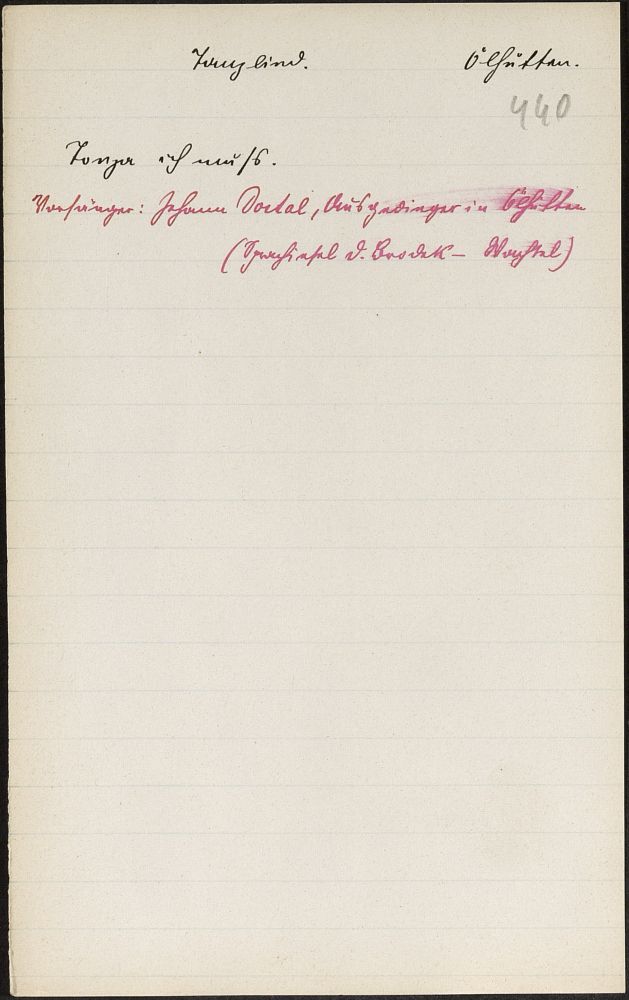 Tanzlied. Ölhütten.
440
Tonza ich muß.
Vorsänger: Johann Dostal, Ausgedinger in Ölhütten
(Sprachinsel D. Brodek – Wachtel)